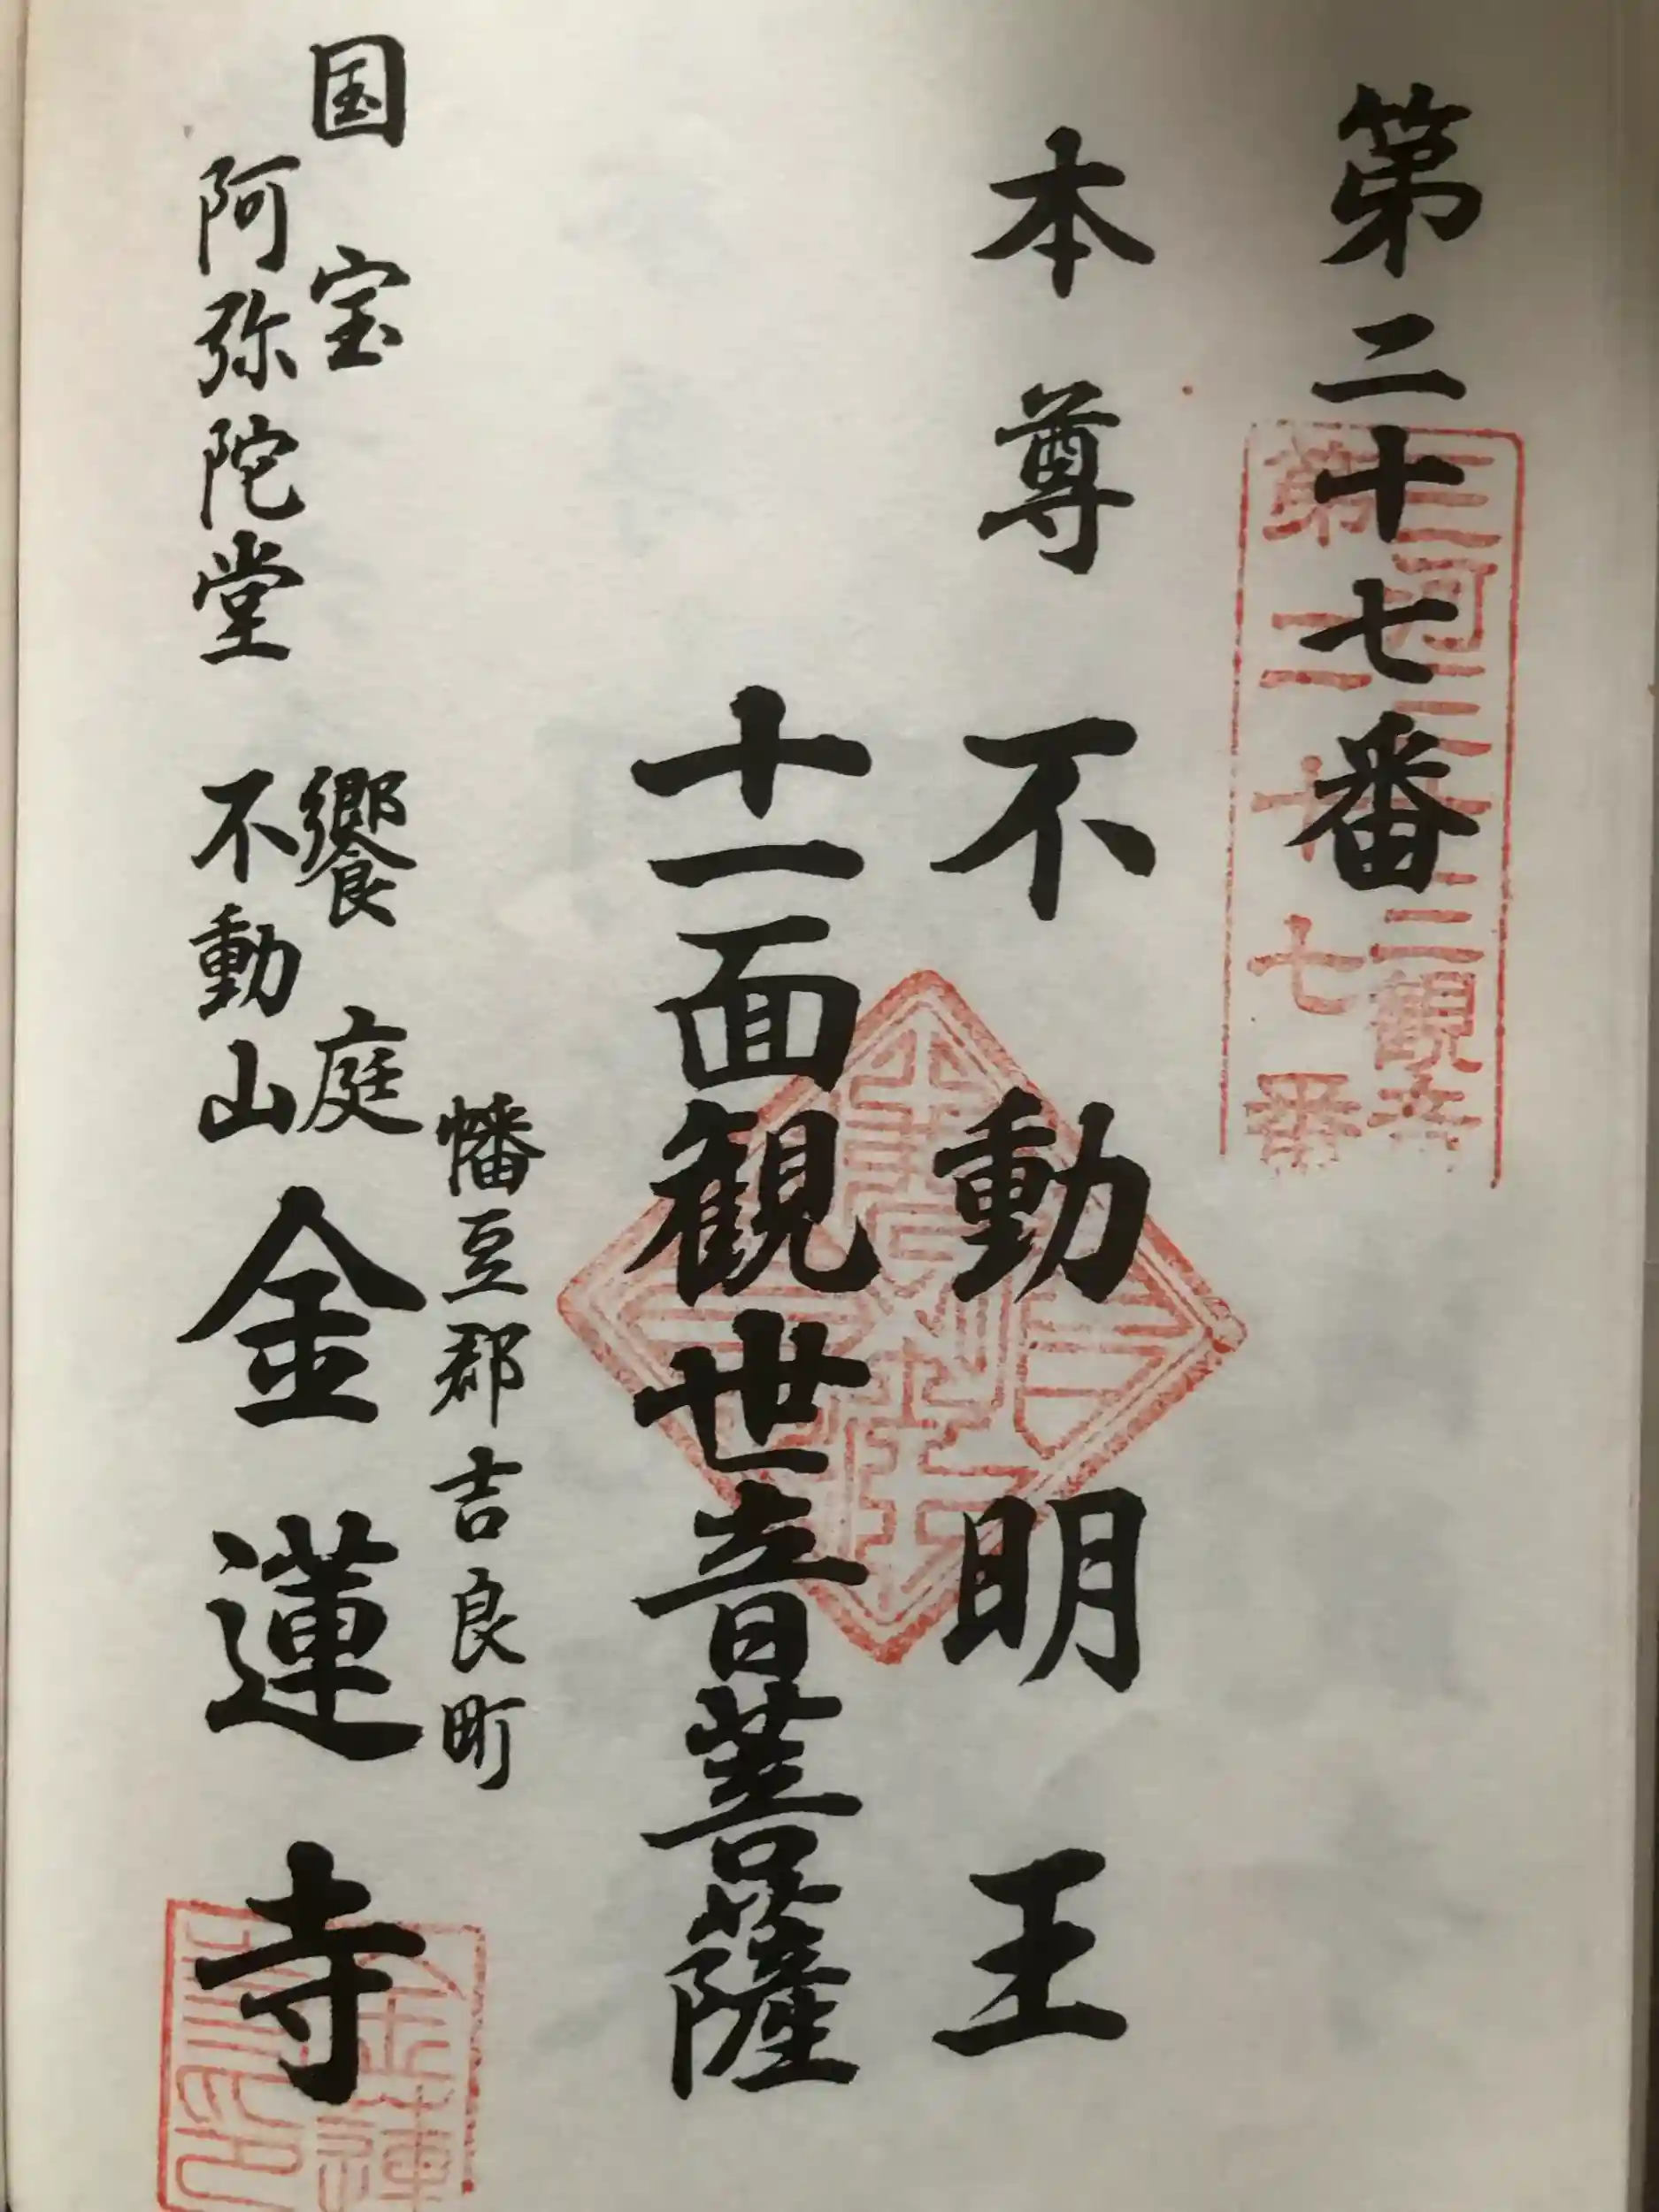 第二十七番
三河三十三観音
第二十七番
本尊 不動明王
十一面観世音菩薩
幡豆郡吉良町
国宝 饗庭
阿弥陀堂 不動山
金蓮寺